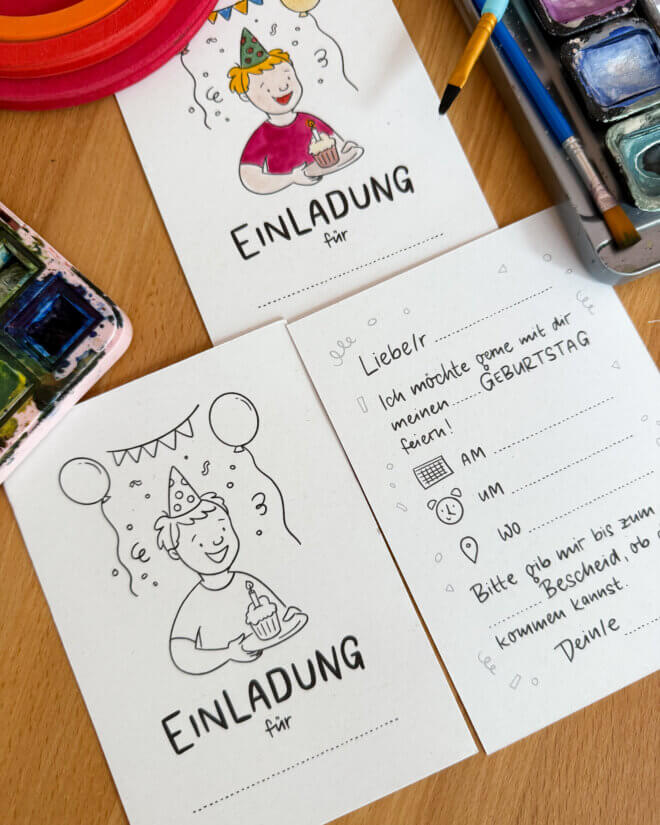 EINLADUNG
für
Liebe/r
Ich möchte gerne mit dir
meinen ..... GEBURTSTAG
feiern!
AM
UM
WO
Bitte gib mir bis zum
Bescheid, ob
kommen kannst.
Deine/e
EINLADUNG
für